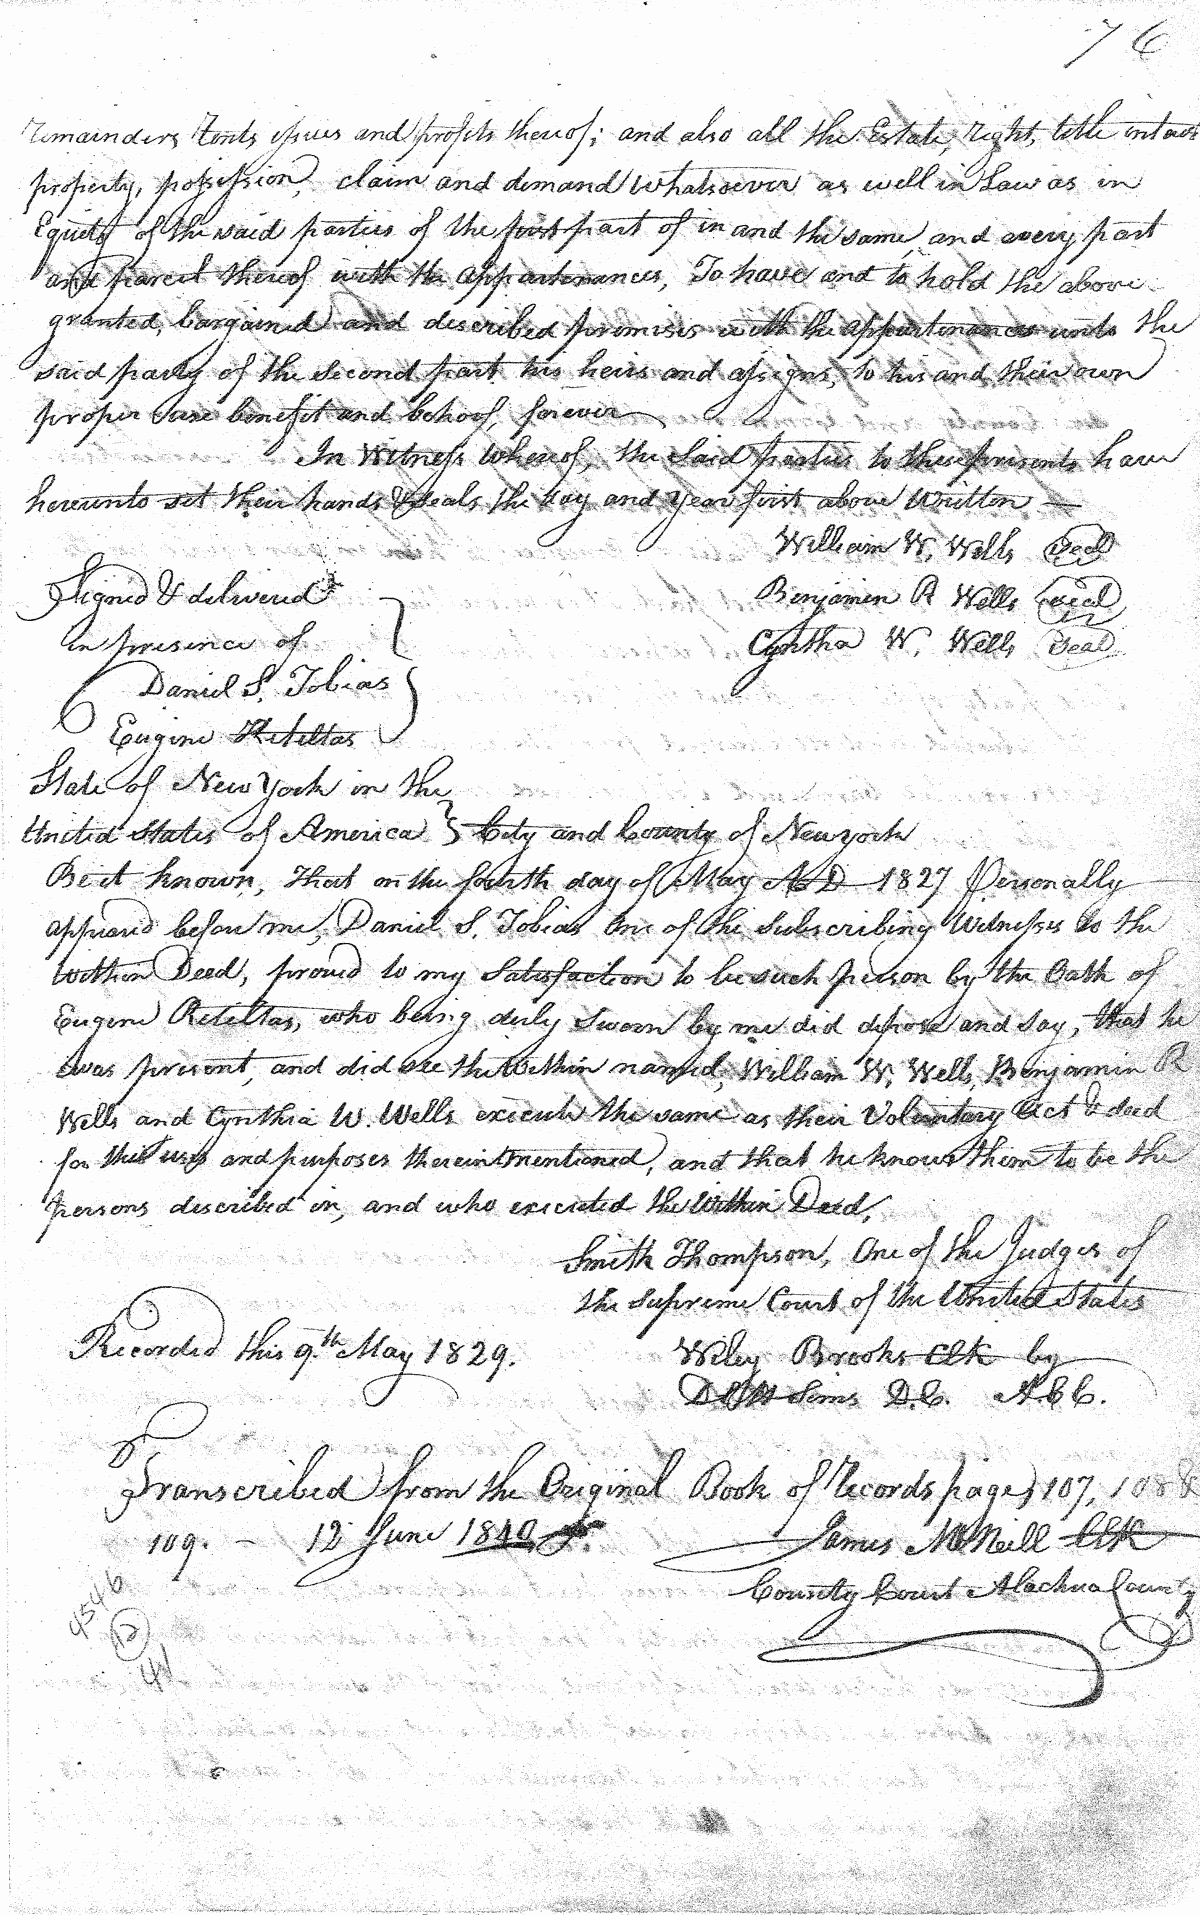 76
remainders, rents issues and profits thereof; and also all the Estate, right, title interest
property, possession, claim and demand whatsoever as well in Law as in
Equity of the said parties of the first part of in and the same, and every part
and parcel thereof with the appurtenances, To have and to hold the above
granted, bargained and described premises with the appurtenances unto the
said party of the second part his heirs and assigns, to his and their own
proper use benefit and behoof, forever
In Witness Whereof, the said parties to these presents have
hereunto set their hands & seals the day and year first above written —
William W. Wells Seal
Signed & delivered Benjamin R Wells Seal
in presence of Cyntha W. Wells Seal
Daniel S. Tobias
Eugene Keteltas
State of New York in the
United States of America } City and County of New york
Be it known, that on the fourth day of May AD 1827 Personally
appeared before me, Daniel S. Tobias One of the subscribing Witnesses to the
within Deed, proved to my satisfaction to be such person by the Oath of
Eugene Keteltas, who being duly sworn by me did depose and say, that he
was present, and did see the within named, William W. Wells, Benjamin R
Wells and Cynthia W. Wells execute the same as their Voluntary Act & deed
for the uses and purposes therein mentioned, and that he knows them to be the
persons described in, and who executed the within Deed,
Smith Thompson, One of the Judges of
the Supreme Court of the United States
Recorded this 9.th May 1829. Wiley Brooks Clk by
Sims D.C. A.C.C.
Transcribed from the Original Book of Records pages 107, 108 &
109. — 12 June 1840 James McNeill Clk
County Court Alachua County
4546
12
41